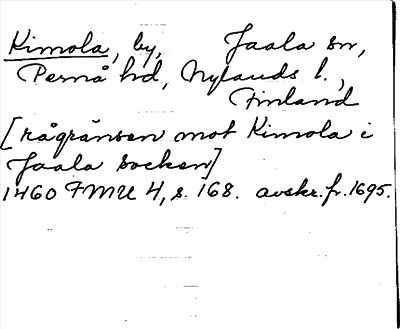 Kimola, by, Jaala sn,
Pernå hd, Nylands l.,
Finland
[rågränsen mot Kimola i
Jaala socken]
1460 FMU 4, s. 168. avskr. fr. 1695.